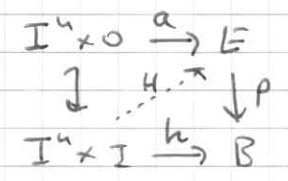 Iⁿ × 0 a→ E
↪ H ↓ p
Iⁿ × I h→ B